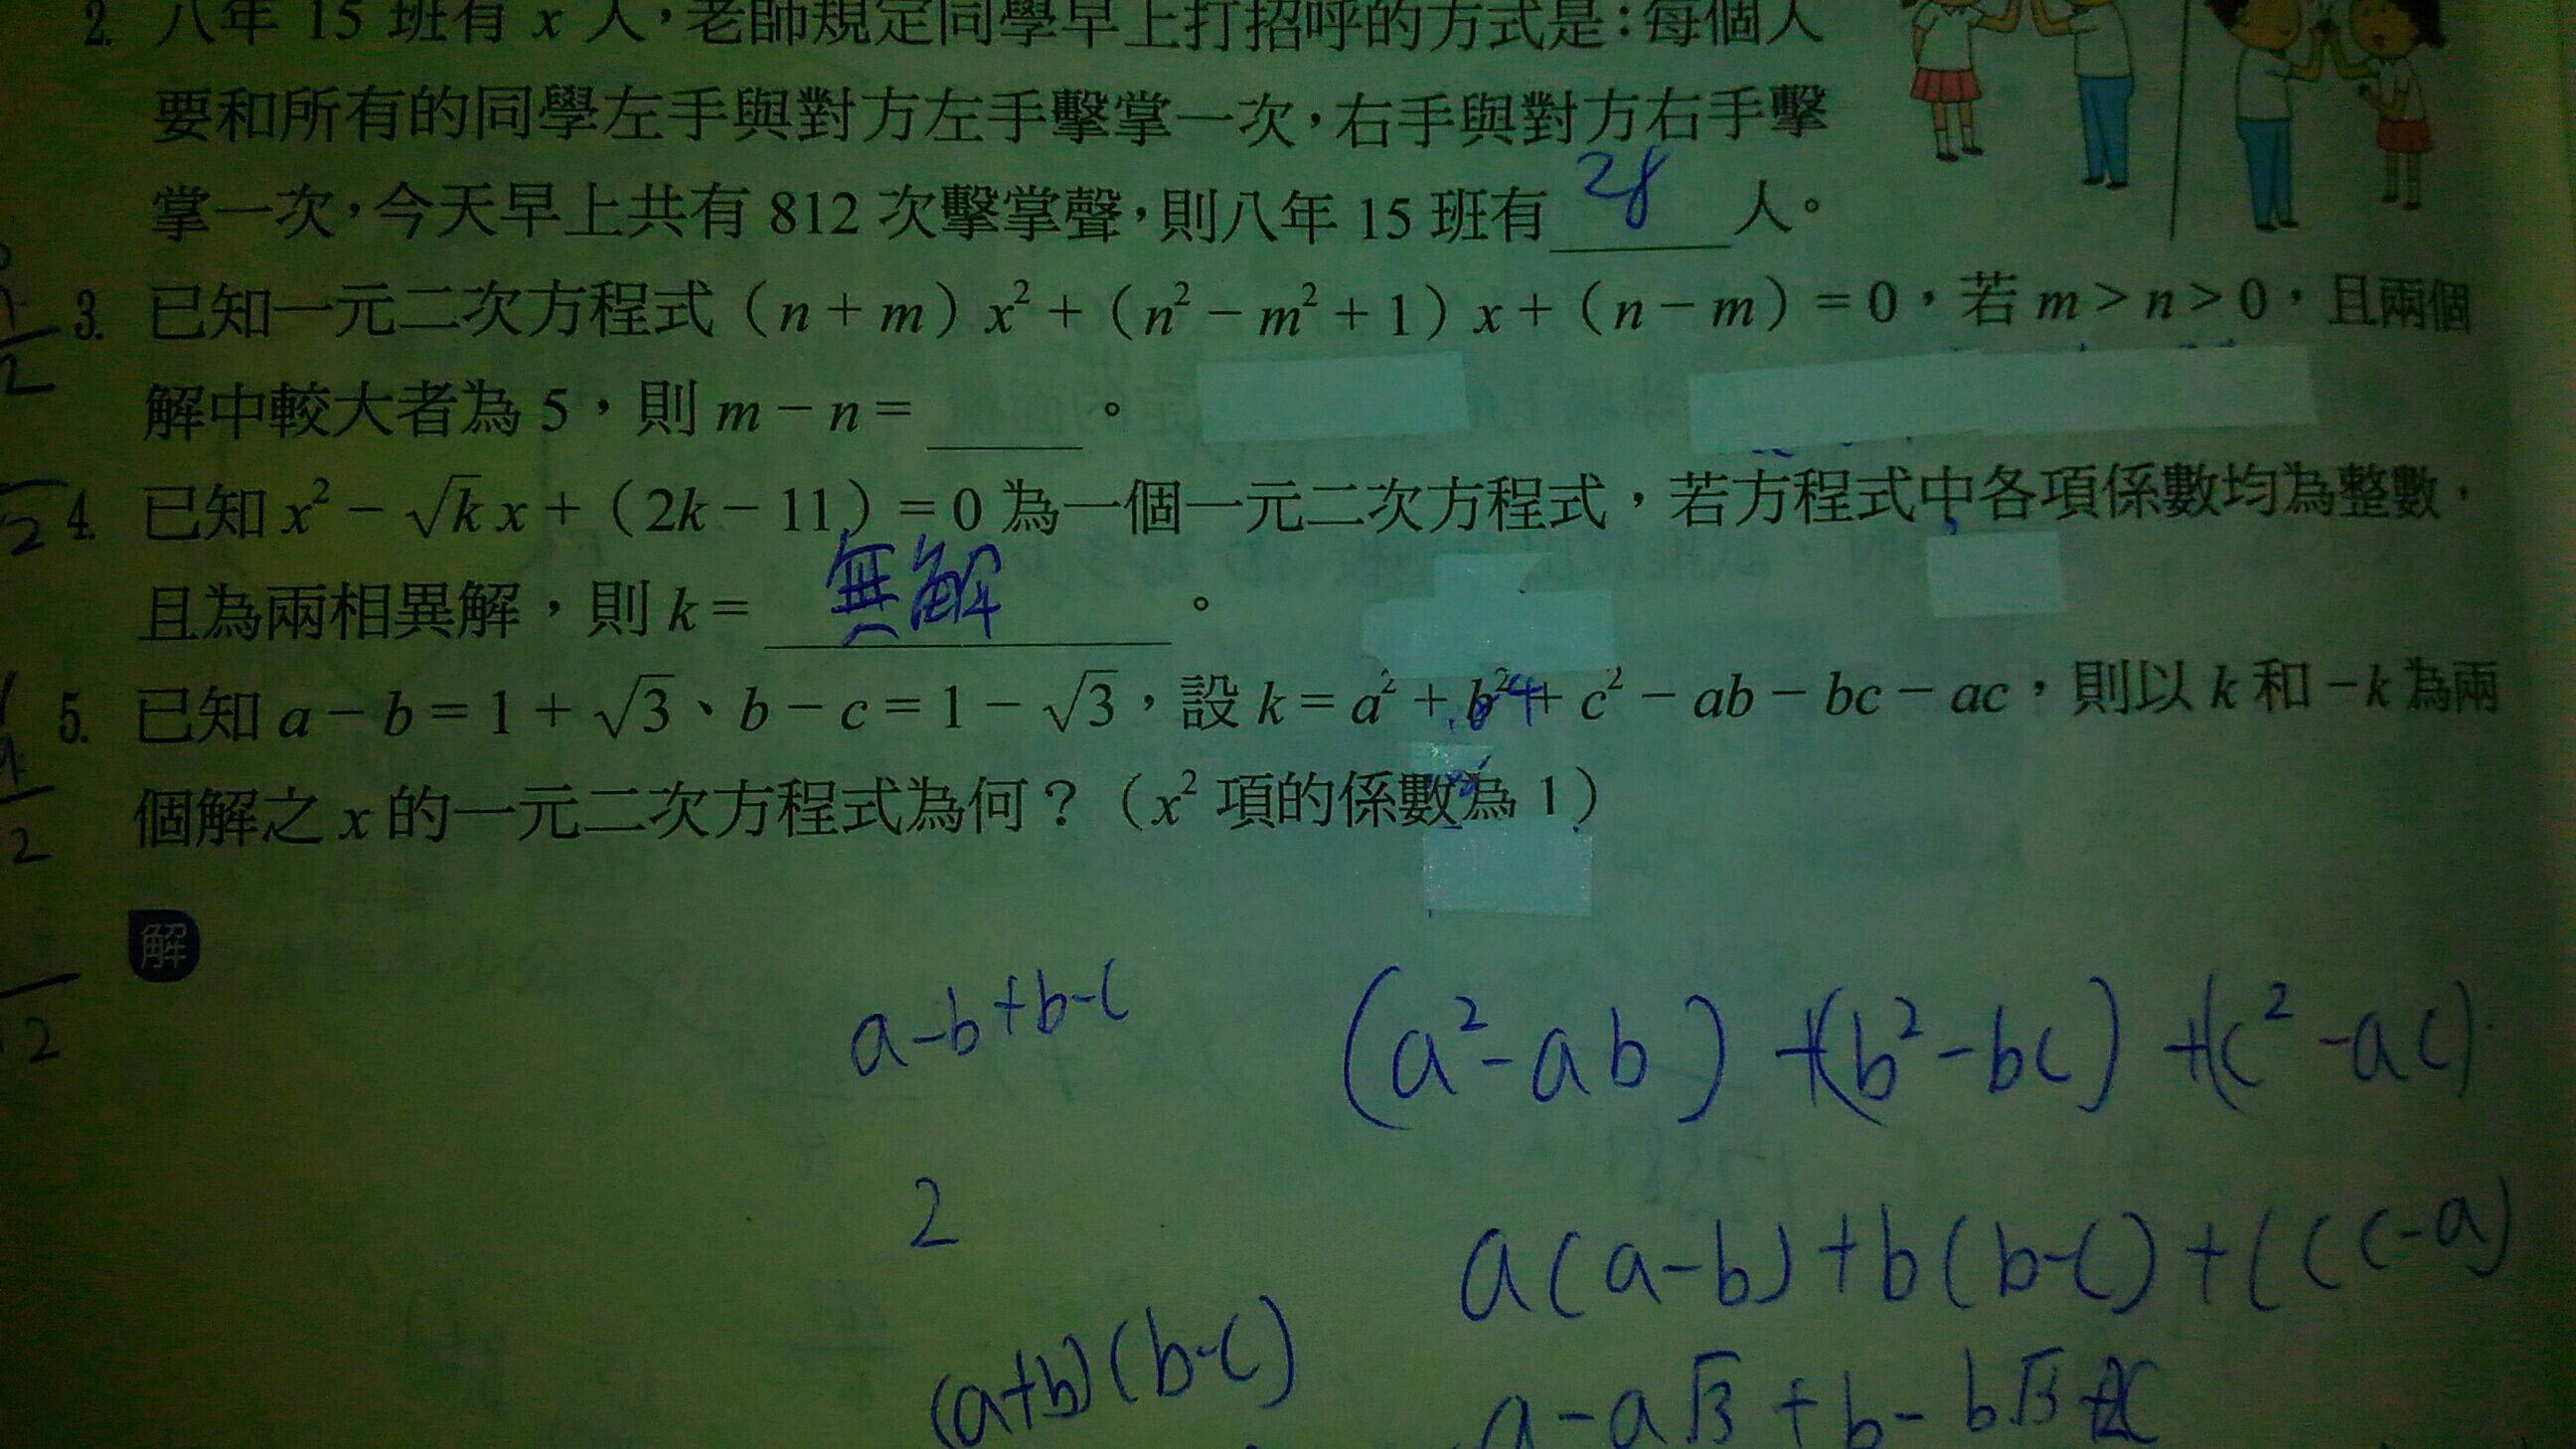 2. 八年 15 班有 x 人，老師規定同學早上打招呼的方式是：每個人
要和所有的同學左手與對方左手擊掌一次，右手與對方右手擊
掌一次，今天早上共有 812 次擊掌聲，則八年 15 班有 28 人。
3. 已知一元二次方程式（n + m）x² +（n² − m² + 1）x +（n − m）= 0，若 m > n > 0，且兩個
解中較大者為 5，則 m − n = ____。
4. 已知 x² − √k x +（2k − 11）= 0 為一個一元二次方程式，若方程式中各項係數均為整數，
且為兩相異解，則 k = 無解。
5. 已知 a − b = 1 + √3、b − c = 1 − √3，設 k = a² + b² + c² − ab − bc − ac，則以 k 和 −k 為兩
個解之 x 的一元二次方程式為何？（x² 項的係數為 1）
解
a-b+b-c
(a²-ab)+(b²-bc)+(c²-ac)
2
a(a-b)+b(b-c)+c(c-a)
(a+b)(b-c)
a-a√3+b-b√3